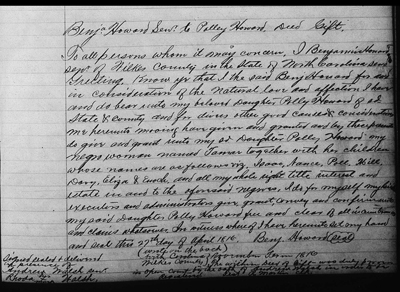 Benjn Howard Senr to Polley Howard Deed Gift.
To all persons whom it may concern, I Benjamin Howard
senr of Wilkes County in the State of North Carolina send
Greeting Know ye that I the said Benj Howard for and
in consideration of the Natural love and affection I have
and do bear unto my beloved Daughter Polly Howard of sd
State & County and for divers other good causes & considerations
me hereunto moving have given and granted and by these presents
do give and grant unto my sd Daughter Polley Howard my
negro woman named Tamer together with her children
whose names are as follows viz, Isaac, Nance, Poll, Will,
Davy, Eliza & and all my whole right title interest and
estate in and to the aforesaid negroes. I do for myself my heirs
executors and administrators give grant, convey and confirm unto
my said Daughter Polley Howard free and clear of all incumbrances
and claims whatsoever. In witness whereof I have hereunto set my hand
and seal this 27th day of April 1816. Benj Howard (seal)
(wrote on the back)
Signed sealed & delivered North Carolina November Term 1816
in presence of Wilkes County The within deed of Gift was duly proven
Andrew in open court by the oath of Andrew
Rhoda Walsh